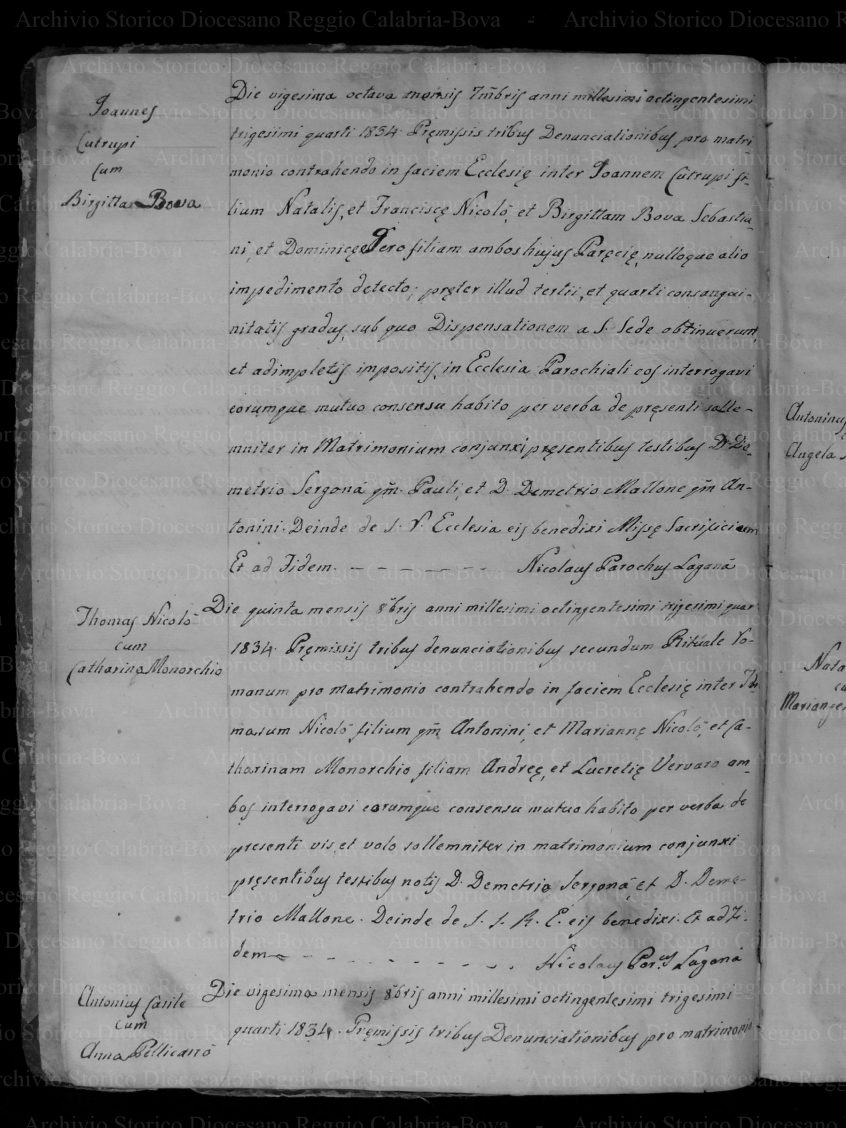 Joannes
Cutrupi
cum
Birgitta Bova
Die vigesima octava mensis 7mbris anni millesimi octingentesimi
trigesimi quarti 1834. Pręmissis tribus Denunciationibus pro matri
monio contrahendo in faciem Ecclesię inter Joannem Cutrupi fi-
lium Natalis, et Franciscę Nicolò, et Birgittam Bova Sebastia-
ni, et Dominicę Pero filiam ambos hujus Paręcię, nulloque alio
impedimento detecto, pręter illud tertii, et quarti consangui-
nitatis gradus, sub quo Dispensationem a S. Sede obtinuerunt,
et adimpletis impositis, in Ecclesia Parochiali eos interrogavi
eorumque mutuo consensu habito per verba de pręsenti solle-
mniter in Matrimonium conjunxi pręsentibus testibus D. De-
metrio Sergonà qm. Pauli, et D. Demetrio Mallone qm An-
tonini. Deinde de Ecclesia eis benedixi Missę Sacrificium
Et ad Fidem. - - - - - - - Nicolaus Parochus Laganà
Thomas Nicolò
cum
Catharina Monorchio
Die quinta mensis 8bris anni millesimi octingentesimi trigesimi quar
1834. Pręmissis tribus denunciationibus secundum Rituale Ro-
manum pro matrimonio contrahendo in faciem Ecclesię inter Tho
masum Nicolò filium qm Antonini, et Mariannę Nicolò, et Ca-
tharinam Monorchio filiam Andreę, et Lucretię Vervaro am-
bos interrogavi eorumque consensu mutuo habito per verba de
pręsenti vis, et volo sollemniter in matrimonium conjunxi
pręsentibus testibus notis D. Demetrio Sergonà, et D. Deme-
trio Mallone. Deinde de S. S. R. E. eis benedixi. Et ad Fi-
dem - - - - - - - - Nicolaus Par.us Laganà
Antonius Casile
cum
Anna Pellicanò
Die vigesima mensis 8bris anni millesimi octingentesimi trigesimi
quarti 1834. Pręmissis tribus Denunciationibus pro matrimonio
Antoninus
Angela
Nata
cu
Mariange
Archivio Storico Diocesano Reggio Calabria-Bova - Archivio Storico Diocesano Reggio Calabria-Bova